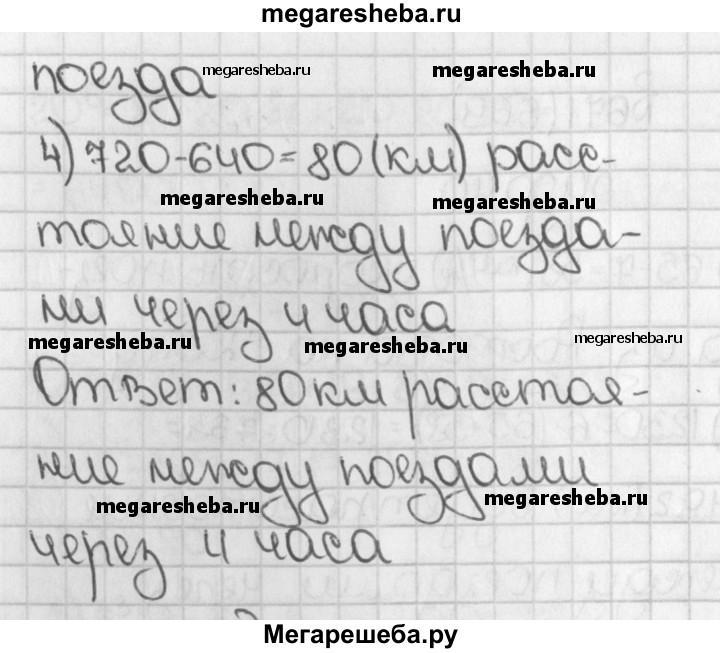 megaresheba.ru
поезда megaresheba.ru megaresheba.ru
4) 720-640=80(км) расс-
megaresheba.ru megaresheba.ru
тояние между поезда-
ми через 4 часа
megaresheba.ru megaresheba.ru megaresheba.ru
Ответ: 80 км расстоя-
ние между поездами
megaresheba.ru megaresheba.ru
через 4 часа
Мегарешеба.ру